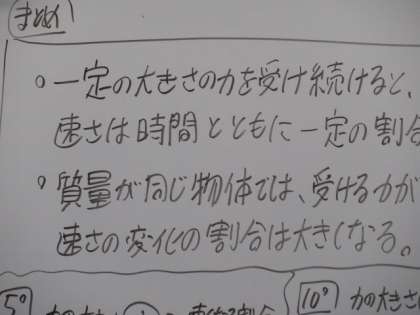 まとめ
○一定の大きさの力を受け続けると、
速さは時間とともに一定の割合
○質量が同じ物体では、受ける力が
速さの変化の割合は大きくなる。
5°
10° 力の大きさ